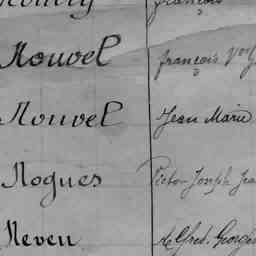 François
Nouvel François
Nouvel Jean Marie
Nogues Victor Joseph Jea
Neveu Alfred Georges